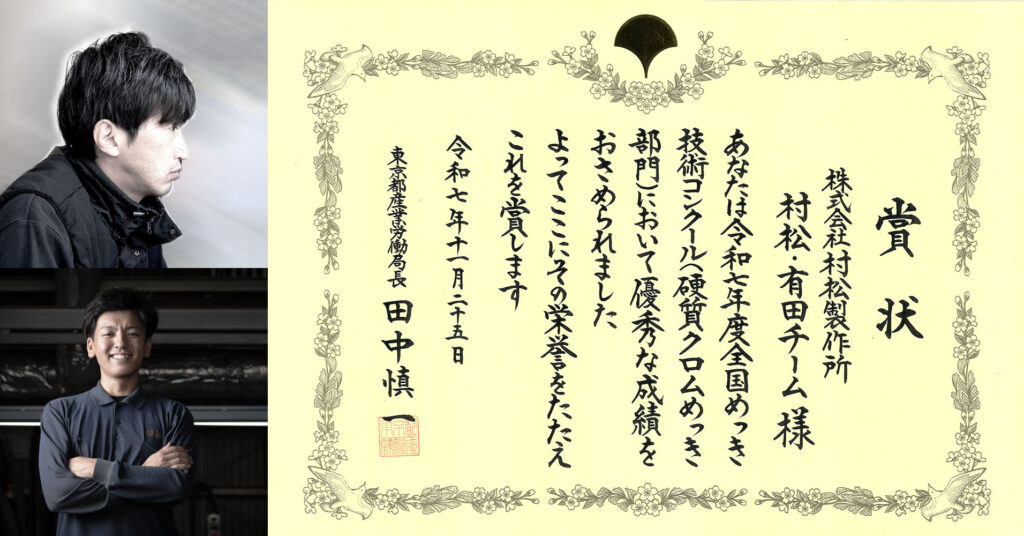 賞状
株式会社村松製作所
村松・有田チーム様
あなたは令和七年度全国めっき
技術コンクール(硬質クロムめっき
部門)において優秀な成績を
おさめられました
よってここにその栄誉をたたえ
これを賞します
令和七年十一月二十五日
東京都産業労働局長
田中慎一